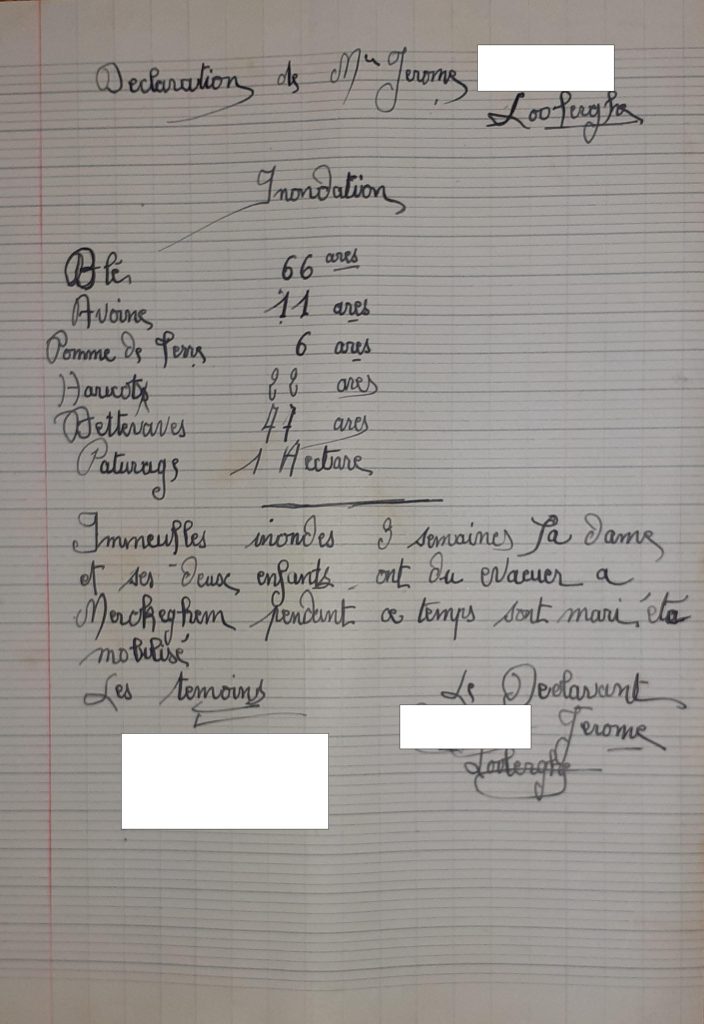 Declaration de Mr Jerome
Looberghe
Inondation
Blé 66 ares
Avoine 11 ares
Pomme de Terre 6 ares
Haricots 22 ares
Betteraves 47 ares
Paturage 1 Hectare
Immeubles inondes 9 semaines La dame
et ses deux enfants ont du evacuer a
Merckeghem pendant ce temps sont mari été
mobilisé
Les temoins
Le Declarant
Jerome
Looberghe